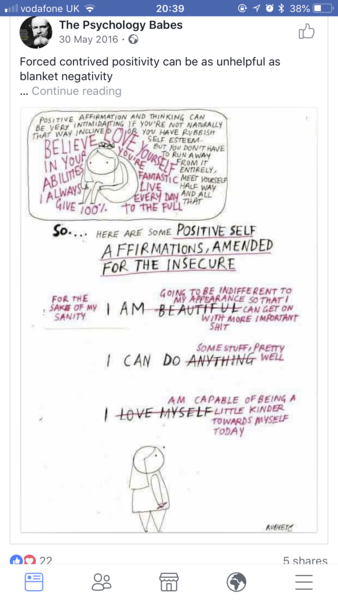 vodafone UK
20:39
38%
The Psychology Babes
30 May 2016 ·
Forced contrived positivity can be as unhelpful as
blanket negativity
... Continue reading
POSITIVE AFFIRMATION AND THINKING CAN
BE VERY INTIMIDATING IF YOU'RE NOT NATURALLY
THAT WAY INCLINED OR YOU HAVE RUBBISH
SELF ESTEEM.
BUT YOU DON'T HAVE
TO RUN AWAY
FROM IT
ENTIRELY,
MEET YOURSELF
HALF WAY
AND ALL
THAT
BELIEVE
IN YOUR
ABILITIES
LOVE YOURSELF
YOU'RE
FANTASTIC
I ALWAYS
GIVE 100%
LIVE
EVERY DAY
TO THE FULL
SO.... HERE ARE SOME POSITIVE SELF
AFFIRMATIONS, AMENDED
FOR THE INSECURE
FOR THE
SAKE OF MY
SANITY
I AM BEAUTIFUL
GOING TO BE INDIFFERENT TO
MY APPEARANCE SO THAT I
CAN GET ON
WITH MORE IMPORTANT
SHIT
SOME STUFF, PRETTY
I CAN DO ANYTHING WELL
AM CAPABLE OF BEING A
I LOVE MYSELF LITTLE KINDER
TOWARDS MYSELF
TODAY
22
5 shares